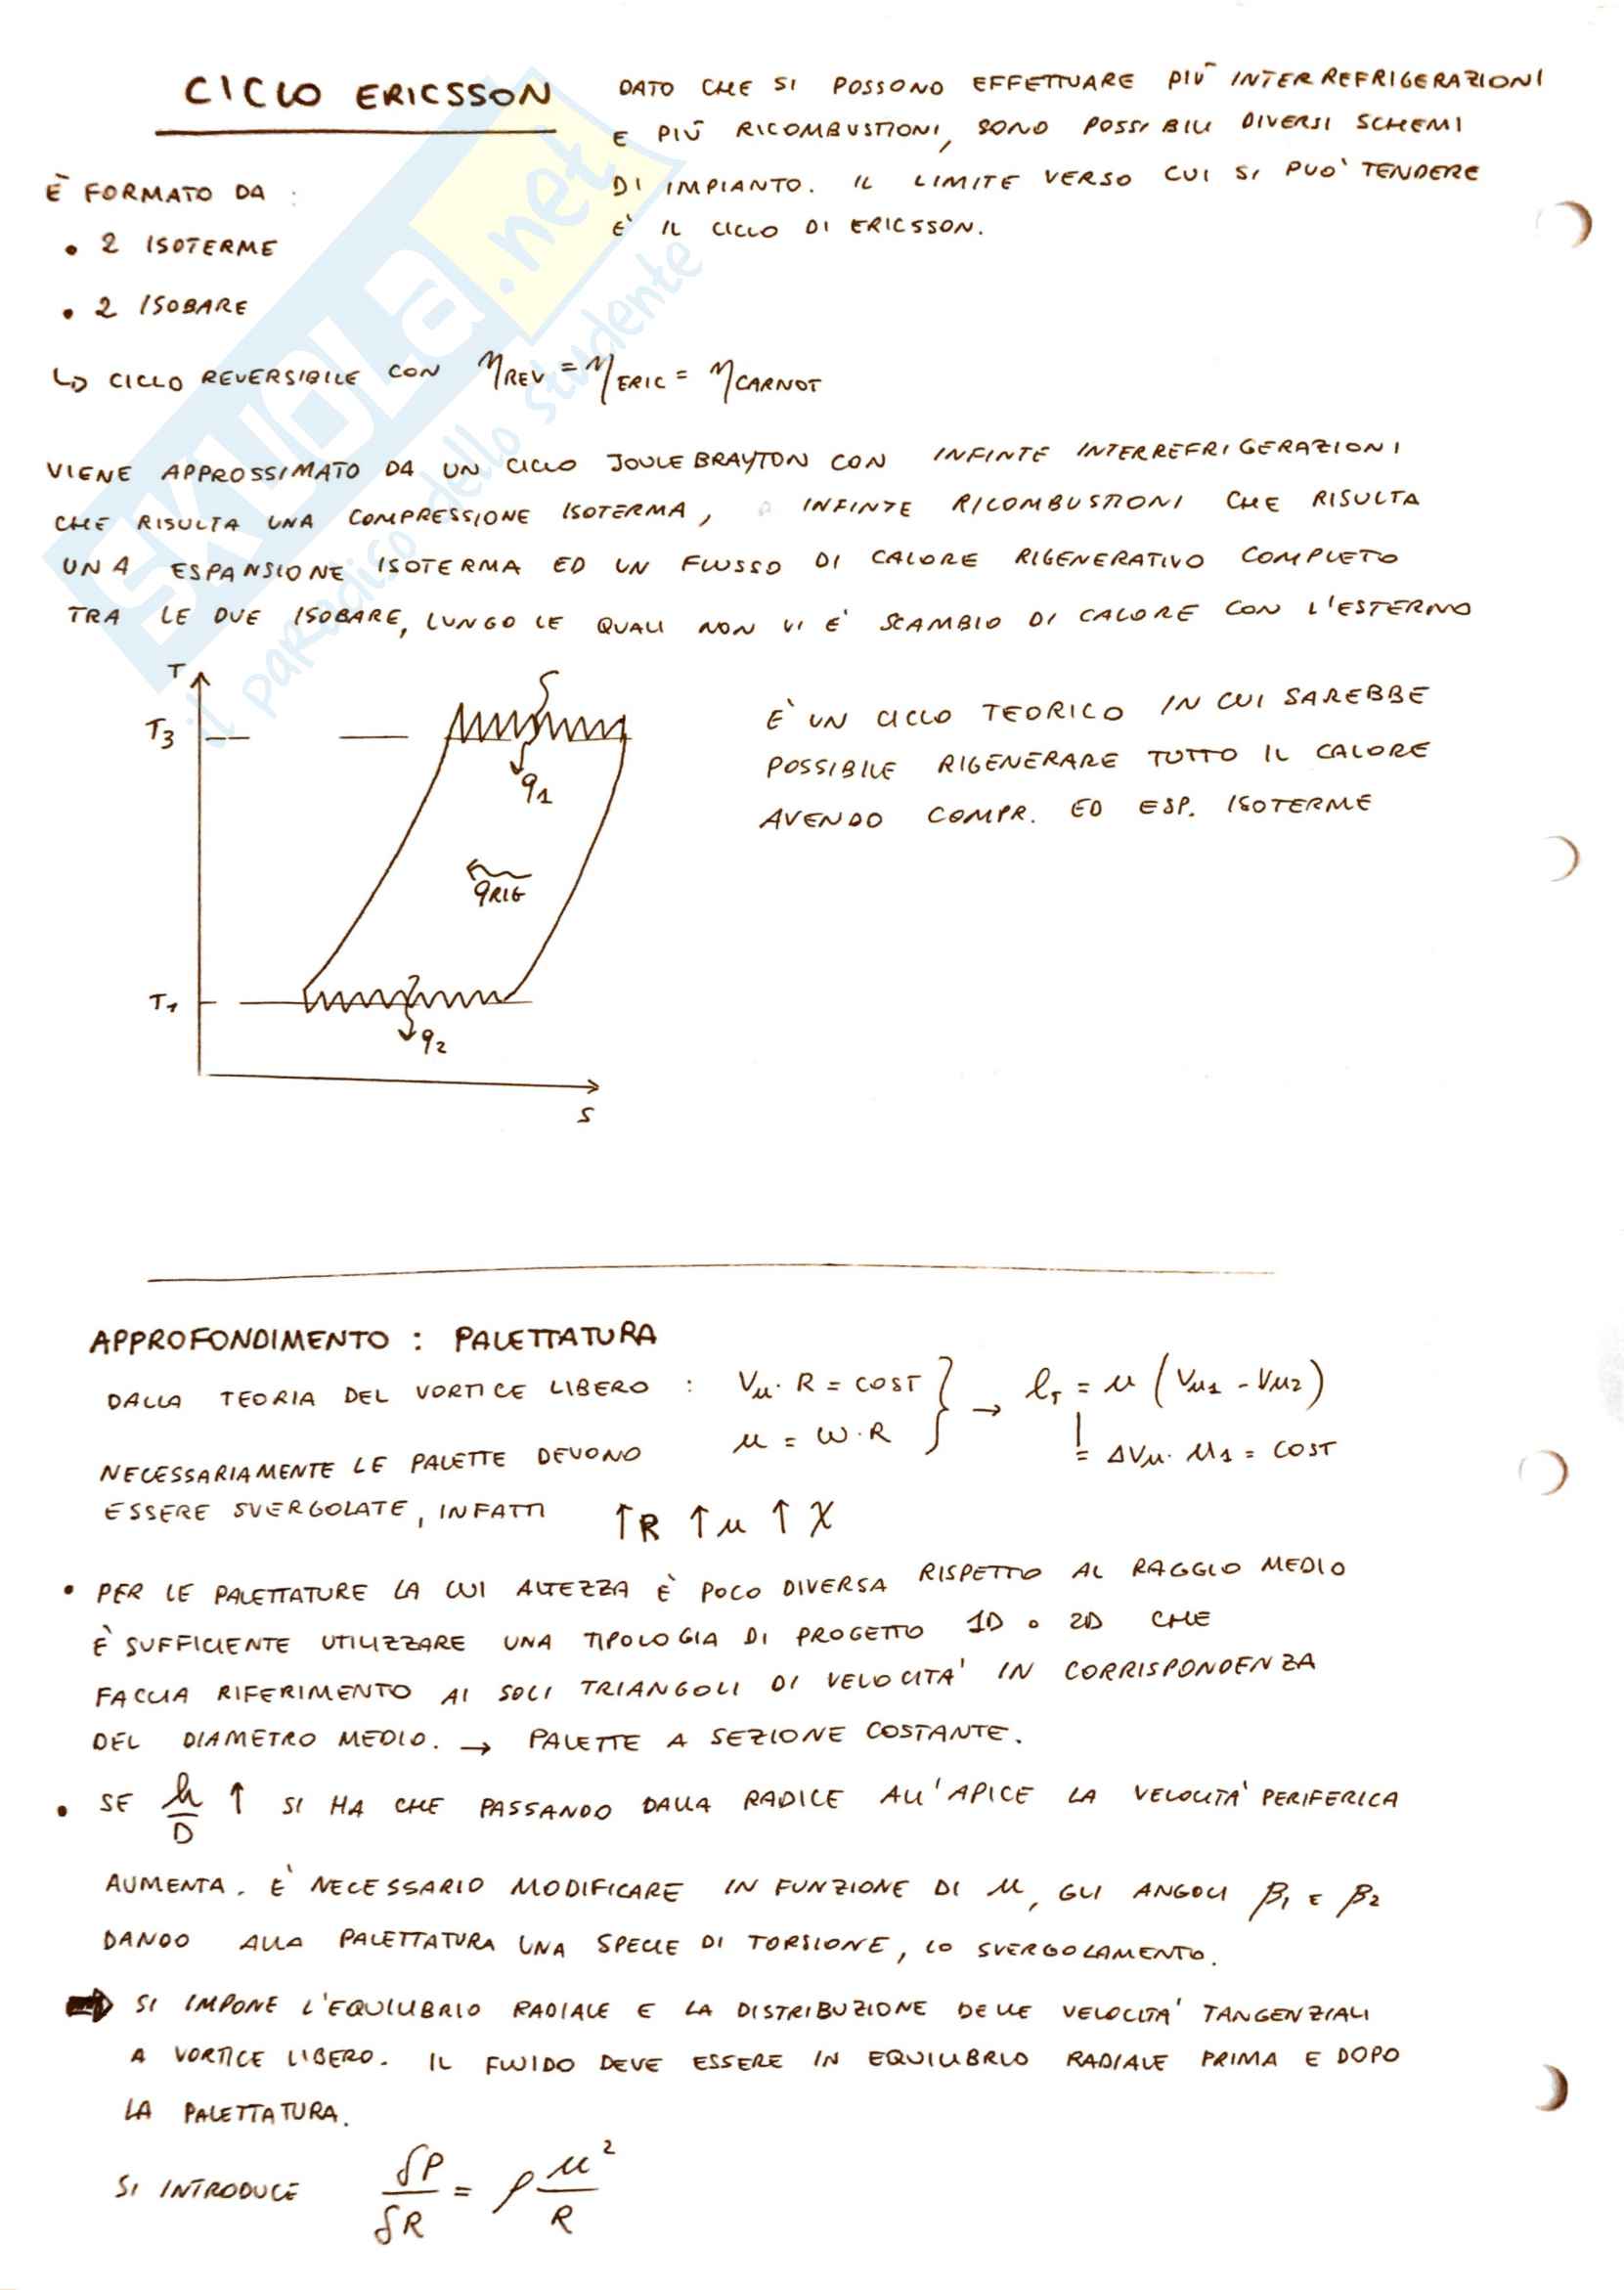 CICLO ERICSSON
DATO CHE SI POSSONO EFFETTUARE PIÙ INTERREFRIGERAZIONI
E PIÙ RICOMBUSTIONI, SONO POSSIBILI DIVERSI SCHEMI
DI IMPIANTO. IL LIMITE VERSO CUI SI PUO' TENDERE
E' IL CICLO DI ERICSSON.
È FORMATO DA :
• 2 ISOTERME
• 2 ISOBARE
↳ CICLO REVERSIBILE CON η REV = η ERIC = η CARNOT
VIENE APPROSSIMATO DA UN CICLO JOULE BRAYTON CON INFINTE INTERREFRIGERAZIONI
CHE RISULTA UNA COMPRESSIONE ISOTERMA, INFINTE RICOMBUSTIONI CHE RISULTA
UNA ESPANSIONE ISOTERMA ED UN FLUSSO DI CALORE RIGENERATIVO COMPLETO
TRA LE DUE ISOBARE, LUNGO LE QUALI NON VI E' SCAMBIO DI CALORE CON L'ESTERNO
T
T3
q1
qRIG
T1
q2
S
E' UN CICLO TEORICO IN CUI SAREBBE
POSSIBILE RIGENERARE TUTTO IL CALORE
AVENDO COMPR. ED ESP. ISOTERME
APPROFONDIMENTO : PALETTATURA
DALLA TEORIA DEL VORTICE LIBERO : Vu · R = COST } → lT = u (Vu1 - Vu2)
u = ω · R
= ΔVu · u1 = COST
NECESSARIAMENTE LE PALETTE DEVONO
ESSERE SVERGOLATE, INFATTI ↑R ↑u ↑χ
• PER LE PALETTATURE LA CUI ALTEZZA È POCO DIVERSA RISPETTO AL RAGGIO MEDIO
È SUFFICIENTE UTILIZZARE UNA TIPOLOGIA DI PROGETTO 1D o 2D CHE
FACCIA RIFERIMENTO AI SOLI TRIANGOLI DI VELOCITA' IN CORRISPONDENZA
DEL DIAMETRO MEDIO. → PALETTE A SEZIONE COSTANTE.
• SE h/D ↑ SI HA CHE PASSANDO DALLA RADICE ALL'APICE LA VELOCITA' PERIFERICA
AUMENTA. E' NECESSARIO MODIFICARE IN FUNZIONE DI u, GLI ANGOLI β1 E β2
DANDO ALLA PALETTATURA UNA SPECIE DI TORSIONE, LO SVERGOLAMENTO.
➡ SI IMPONE L'EQUILIBRIO RADIALE E LA DISTRIBUZIONE DELLE VELOCITA' TANGENZIALI
A VORTICE LIBERO. IL FLUIDO DEVE ESSERE IN EQUILIBRIO RADIALE PRIMA E DOPO
LA PALETTATURA.
SI INTRODUCE δP/δR = ρ u²/R
SKUOLA.net
il paradiso dello studente